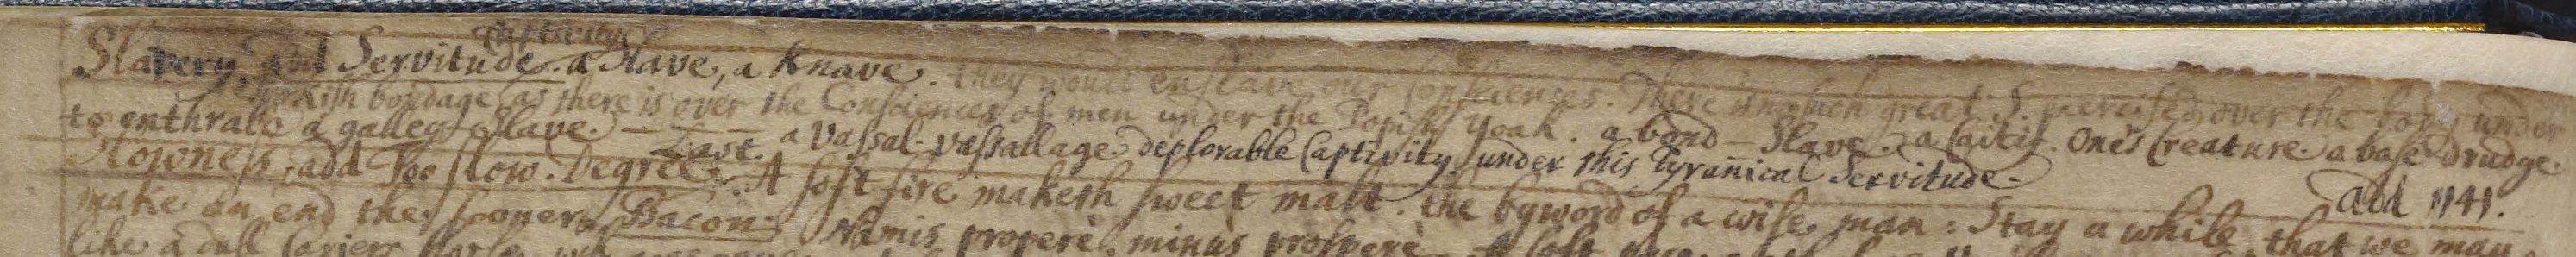 Captivity
Slavery, add Servitude. a Slave, a Knave. They would enslave our Consciences. There is no such great S. exercised over the body under
Turkish bondage, as there is over the Consciences of men under the Popish Yoak. a bond-Slave. a Caitif. One's Creature. a base Drudge.
to enthrale a galley Slave. a Vassal. Vassallage. deplorable Captivity under this Tyrañical Servitude.
add 1141.
Slowness, add Too slow. Degree. A soft fire maketh sweet malt. the byword of a wise man: Stay a while that we may
make an end the sooner. Bacon. Nimis properè, minùs prosperè. A soft
like a dull Cariers Horse,